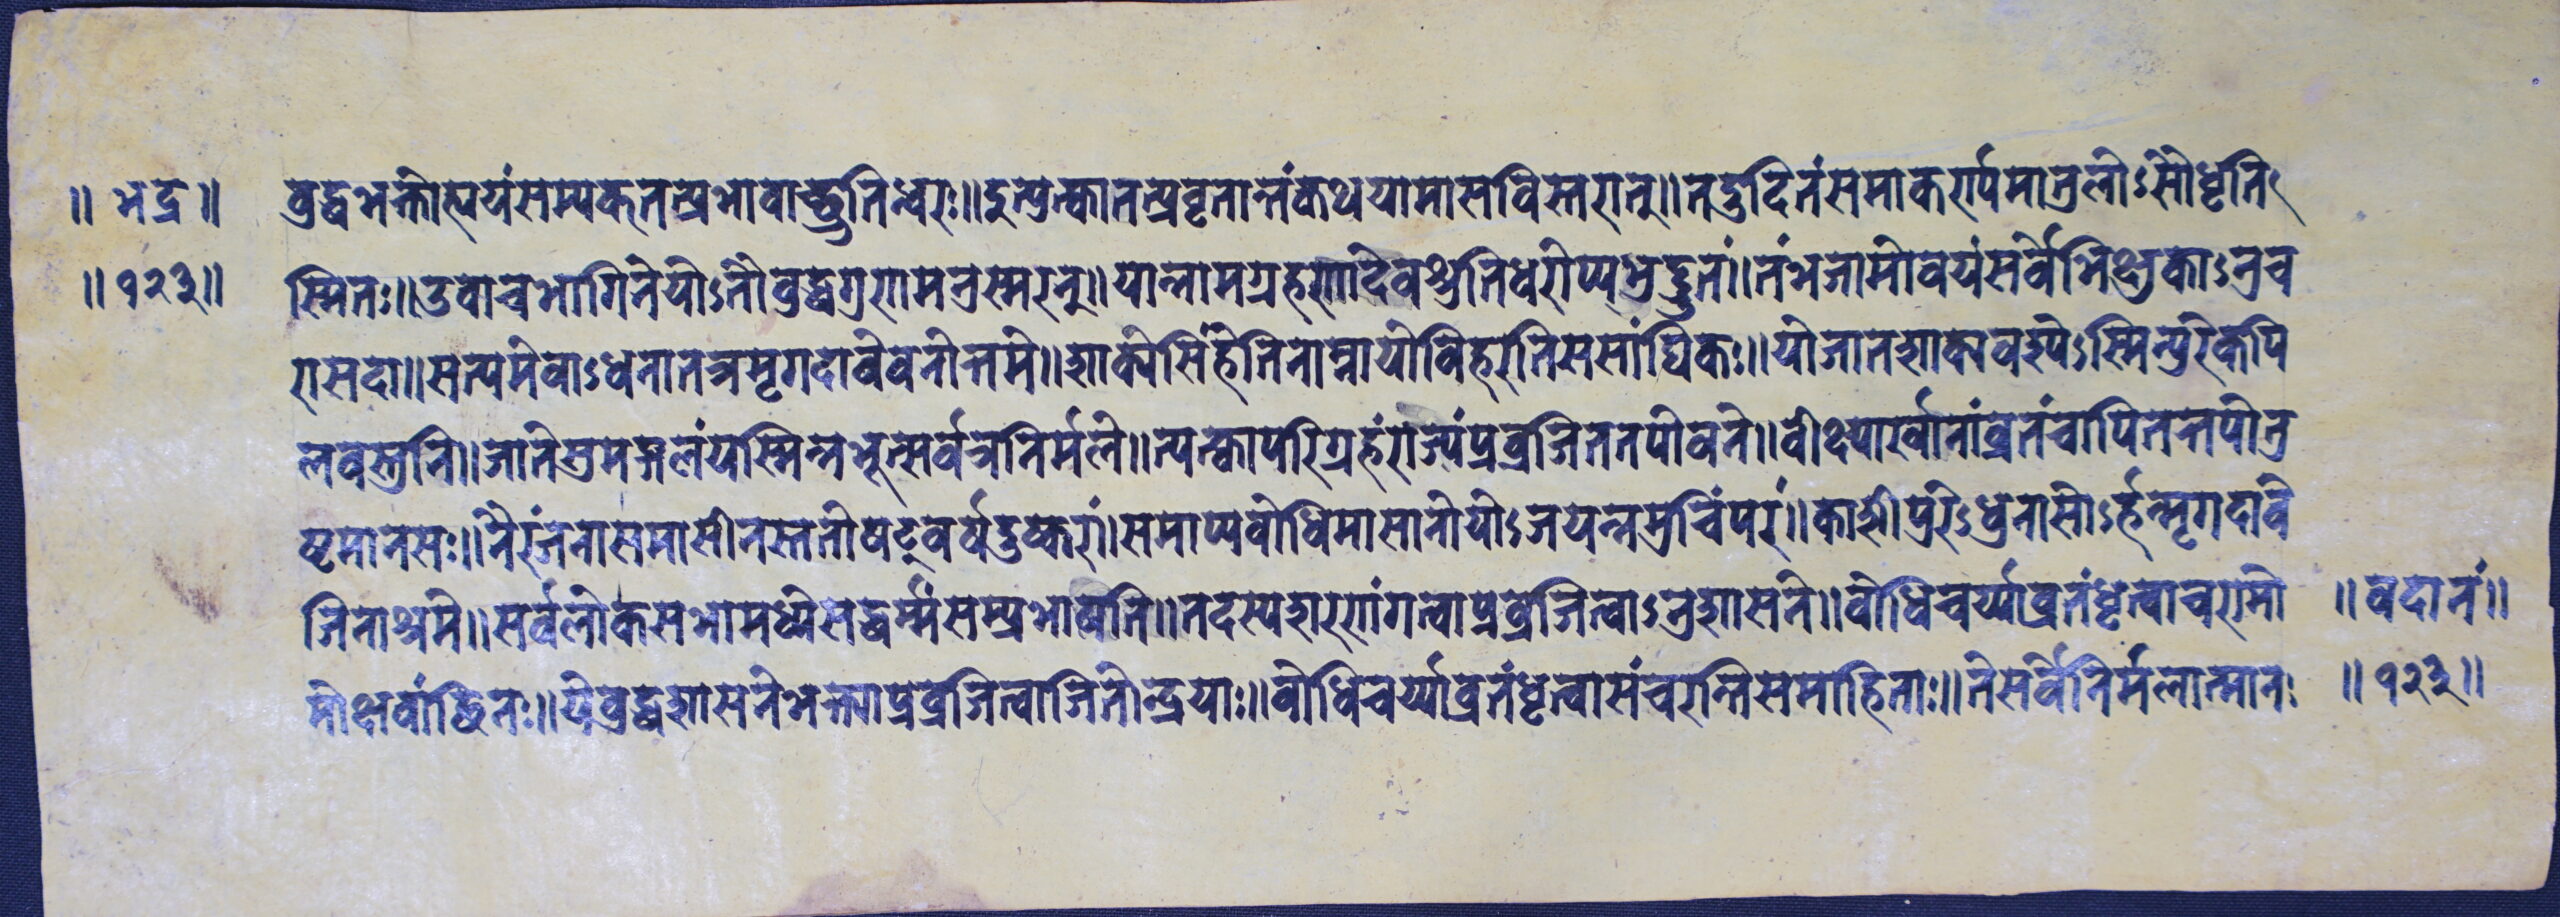 ॥ भद्र ॥
॥ १२३॥
बुद्धभक्तोह्ययंसम्यक्तत्प्रभावाच्छ्रुतिन्धरः॥दुत्प्रुत्क्वातत्प्रवृत्तान्तंकथयामासविस्तरात्॥तदुदितंसमाकर्ण्यमातुलोऽसौधृति
स्मितः॥उवाचभागिनेयोऽतौबुद्धगुणमनुस्मरन्॥यन्नामग्रहणादेवश्रुतिधरोप्यभूद्द्रुतं॥तंभजामोवयंसर्वेभिक्षुकाऽनुच
रासदा॥सत्यमेवाऽधुनातत्रमृगदावेवनोत्तमे॥शाक्यसिंहेतिनाम्नायोविहरतिससांघिकः॥योजातशाक्यवंश्येऽस्मिन्पुरेकपि
लवस्तुनि॥जातेसुमङ्गलंयस्मिन्नभूत्सर्वत्रनिर्मले॥त्यत्क्वापरिग्रहंराज्यंप्रव्रजिततपोवने॥वीक्ष्यार्खानांव्रतंचापितत्तपोतु
ष्टमानसः॥नैरंजनासमासीनस्ततोषट्वर्षदुष्करां।समाप्यबोधिमासानोयोऽजयन्नमुचिंपरं॥काशीपुरेऽधुनासोऽर्हन्मृगदावे
जिनाश्रमे॥सर्वलोकसभामध्येसद्धर्म्मंसम्प्रभाषति॥तदस्यशरणंगत्वाप्रव्रजित्वाऽनुशासने॥बोधिचर्य्याव्रतंधृत्वाचरामो
॥ वदानं॥
मोक्षवांछितः॥येबुद्धशासनेभक्त्याप्रव्रजित्वाजितेन्द्रियाः॥बोधिचर्य्याव्रतंधृत्वासंचरन्तिसमाहिताः॥तेसर्वेनिर्मलात्मानः
॥ १२३॥